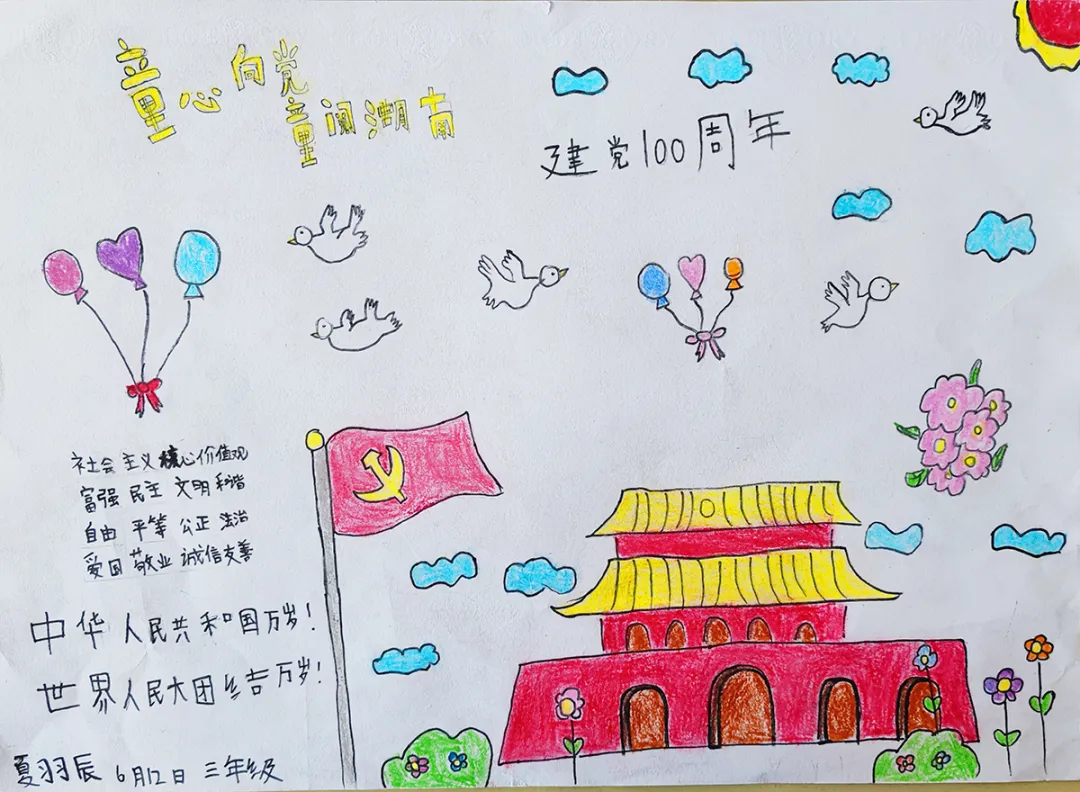 童心向党
童阅湖南
建党100周年
社会主义核心价值观
富强 民主 文明 和谐
自由 平等 公正 法治
爱国 敬业 诚信 友善
中华人民共和国万岁！
世界人民大团结万岁！
夏羽辰 6月12日 三年级